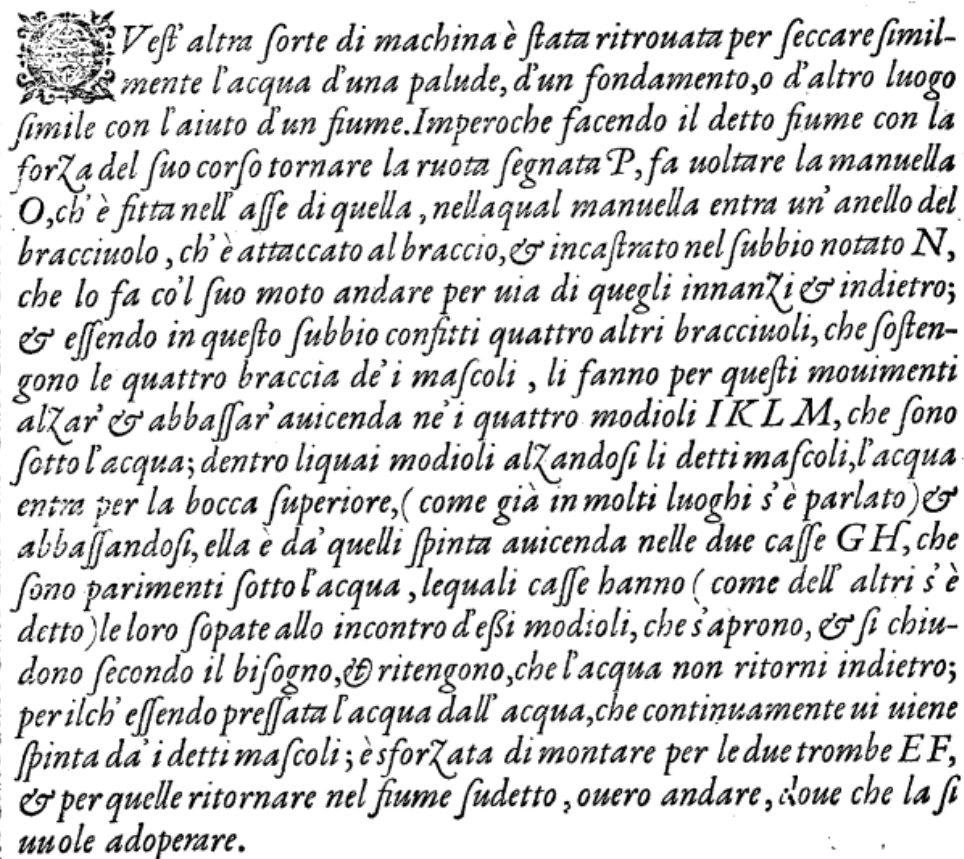 QVeſt' altra ſorte di machina è ſtata ritrouata per ſeccare ſimil-
mente l'acqua d'una palude, d'un fondamento, o d'altro luogo
ſimile con l'aiuto d'un fiume. Imperoche facendo il detto fiume con la
forza del ſuo corſo tornare la ruota ſegnata P, fa uoltare la manuella
O, ch' è fitta nell' aſſe di quella, nellaqual manuella entra un' anello del
bracciuolo, ch' è attaccato al braccio, & incaſtrato nel ſubbio notato N,
che lo fa co'l ſuo moto andare per uia di quegli innanzi & indietro;
& eſſendo in queſto ſubbio confitti quattro altri bracciuoli, che ſoſten-
gono le quattro braccia de' i maſcoli, li fanno per queſti mouimenti
alzar' & abbaſſar' auicenda ne' i quattro modioli IKLM, che ſono
ſotto l'acqua; dentro liquai modioli alzandoſi li detti maſcoli, l'acqua
entra per la bocca ſuperiore, (come già in molti luoghi s'è parlato) &
abbaſſandoſi, ella è da' quelli ſpinta auicenda nelle due caſſe GH, che
ſono parimenti ſotto l'acqua, lequali caſſe hanno (come dell' altri s'è
detto) le loro ſopate allo incontro d'eßi modioli, che s'aprono, & ſi chiu-
dono ſecondo il biſogno, & ritengono, che l'acqua non ritorni indietro;
perilch' eſſendo preſſata l'acqua dall' acqua, che continuamente ui uiene
ſpinta da' i detti maſcoli; è sforzata di montare per le due trombe EF,
& per quelle ritornare nel fiume ſudetto, ouero andare, doue che la ſi
uuole adoperare.